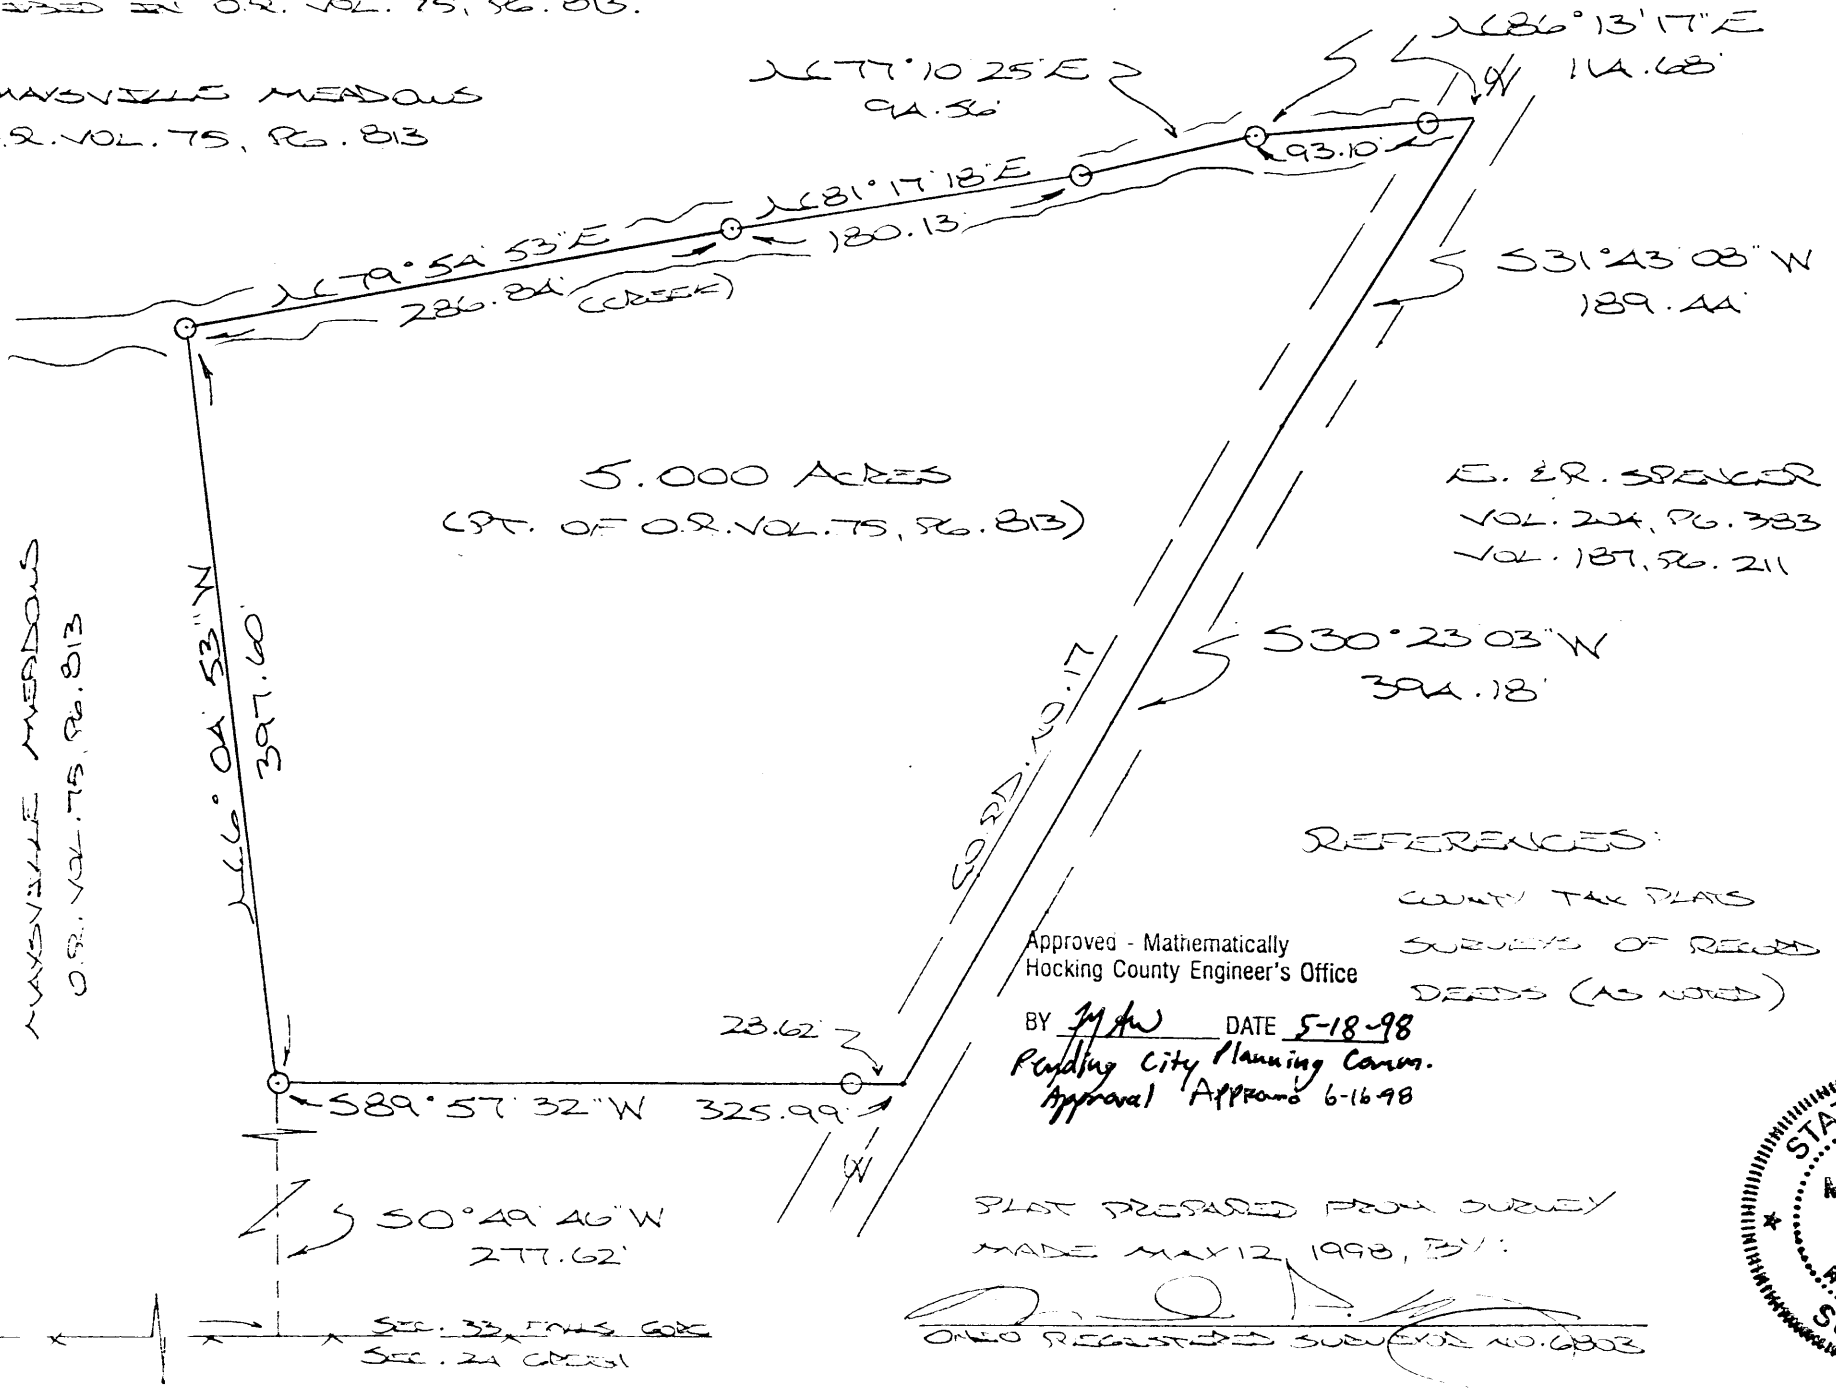 IN O.R. VOL. 75, PG. 813.
MAYSVILLE MEADOWS
O.R. VOL. 75, PG. 813
N 77° 10' 25" E
94.56'
N 86° 13' 17" E
114.68'
93.10'
N 81° 17' 18" E
180.13'
N 79° 54' 53" E
286.84'
(CREEK)
S 31° 43' 08" W
189.44'
5.000 ACRES
(PT. OF O.R. VOL. 75, PG. 813)
E. & R. SPENCER
VOL. 204, PG. 383
VOL. 187, PG. 211
MAYSVILLE MEADOWS
O.R. VOL. 75, PG. 813
N 6° 04' 53" W
397.60'
S 30° 23' 03" W
394.18'
CO. RD. NO. 17
REFERENCES:
COUNTY TAX PLATS
SURVEYS OF RECORD
DEEDS (AS NOTED)
Approved - Mathematically
Hocking County Engineer's Office
BY DATE 5-18-98
Pending City Planning Comm.
Approval Approved 6-16-98
23.62'
S 89° 57' 32" W 325.99'
S 0° 49' 46" W
277.62'
PLAT PREPARED FROM SURVEY
MADE MAY 12, 1998, BY:
OHIO REGISTERED SURVEYOR NO. 6803
SEC. 33, FALLS GORE
SEC. 24 GREEN